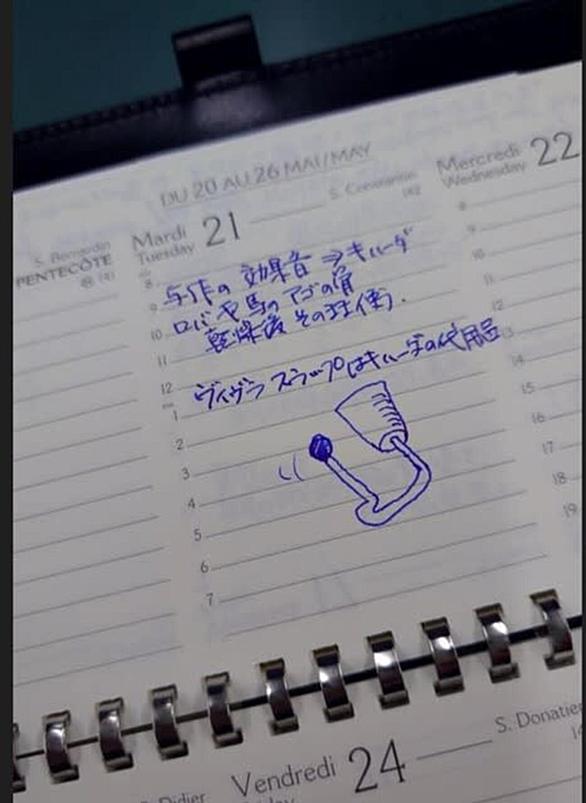 DU 20 AU 26 MAI/MAY
S. Bernardin
PENTECÔTE
Mardi
Tuesday 21
S. Constantin
Mercredi
Wednesday 22
8
与作の 効果音 ⇒ キハーダ
9
ロバや馬のアゴの骨
10
乾燥後 その まま使う.
11
12
ヴィブラ スラップはキハーダの代用品
1
2
3
4
5
6
7
8
9
10
11
12
13
14
15
16
17
18
19
S. Didier
Vendredi 24
S. Donatien